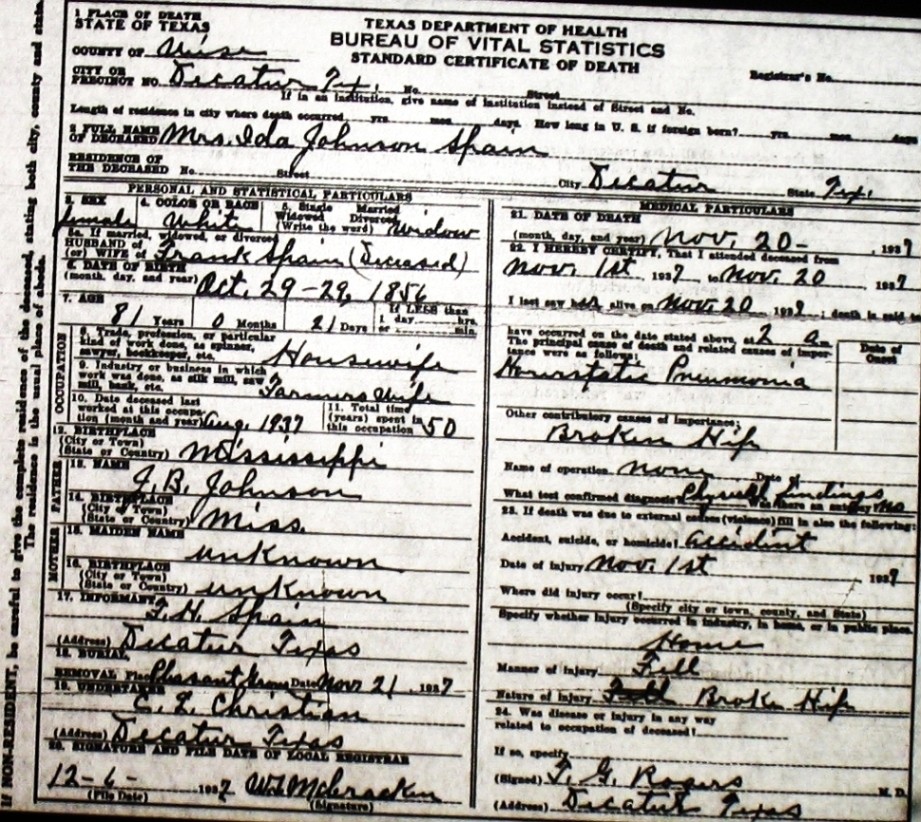 1 PLACE OF DEATH
STATE OF TEXAS
TEXAS DEPARTMENT OF HEALTH
BUREAU OF VITAL STATISTICS
STANDARD CERTIFICATE OF DEATH
COUNTY OF Wise
Registrar's No.
CITY OR
PRECINCT NO. Decatur Tex. No. Street
If in an institution, give name of institution instead of Street and No.
Length of residence in city where death occurred yrs. mos. days. How long in U. S. if foreign born? yrs. mos. days
2 FULL NAME
OF DECEASED Mrs. Ida Johnson Spain
RESIDENCE OF
THE DECEASED No. Street City Decatur State Tex.
PERSONAL AND STATISTICAL PARTICULARS
3. SEX 4. COLOR OR RACE 5. Single Married
Widowed Divorced
(Write the word)
female White widow
5a. If married, widowed, or divorced
HUSBAND OF
(or) WIFE OF Frank Spain (Deceased)
6. DATE OF BIRTH
(month, day, and year) Oct. 29-29, 1856
7. AGE If LESS than
81 Years 0 Months 21 Days 1 day hrs.
or min.
OCCUPATION
8. Trade, profession, or particular
kind of work done, as spinner,
sawyer, bookkeeper, etc. Housewife
9. Industry or business in which
work was done, as silk mill, saw
mill, bank, etc. Farmers Wife
10. Date deceased last
worked at this occupa-
tion (month and year) Aug. 1937
11. Total time
(years) spent in
this occupation 50
12. BIRTHPLACE
(City or Town)
(State or Country) Mississippi
FATHER
13. NAME
J. B. Johnson
14. BIRTHPLACE
(City or Town)
(State or Country) Miss.
MOTHER
15. MAIDEN NAME
unknown
16. BIRTHPLACE
(City or Town)
(State or Country) unknown
17. INFORMANT
Spain
(Address) Decatur Texas
18. BURIAL
REMOVAL Place Pleasant Date Nov 21, 1937
19. UNDERTAKER
Christian
(Address) Decatur Texas
20. SIGNATURE AND FILE DATE OF LOCAL REGISTRAR
12-6- 1937
(File Date) (Signature)
MEDICAL PARTICULARS
21. DATE OF DEATH
(month, day, and year) Nov. 20- , 1937
22. I HEREBY CERTIFY, That I attended deceased from
Nov. 1st 1937, to Nov. 20 1937
I last saw her alive on Nov. 20 1937; death is said to
have occurred on the date stated above, at 2 a.m.
The principal cause of death and related causes of impor-
tance were as follows:
Date of
Onset
Pneumonia
Other contributory causes of importance:
Broken Hip
Name of operation none Date of
What test confirmed diagnosis? Physical findings Was there an autopsy? no
23. If death was due to external causes (violence) fill in also the following:
Accident, suicide, or homicide? accident
Date of injury Nov. 1st 1937
Where did injury occur?
(Specify city or town, county, and State)
Specify whether injury occurred in industry, in home, or in public place.
Home
Manner of injury Fall
Nature of injury Broken Hip
24. Was disease or injury in any way
related to occupation of deceased?
If so, specify
(Signed) T. G. Rogers M. D.
(Address) Decatur Texas
If NON-RESIDENT, be careful to give the complete residence of the deceased, stating both city, county and state.
The residence is the usual place of abode.